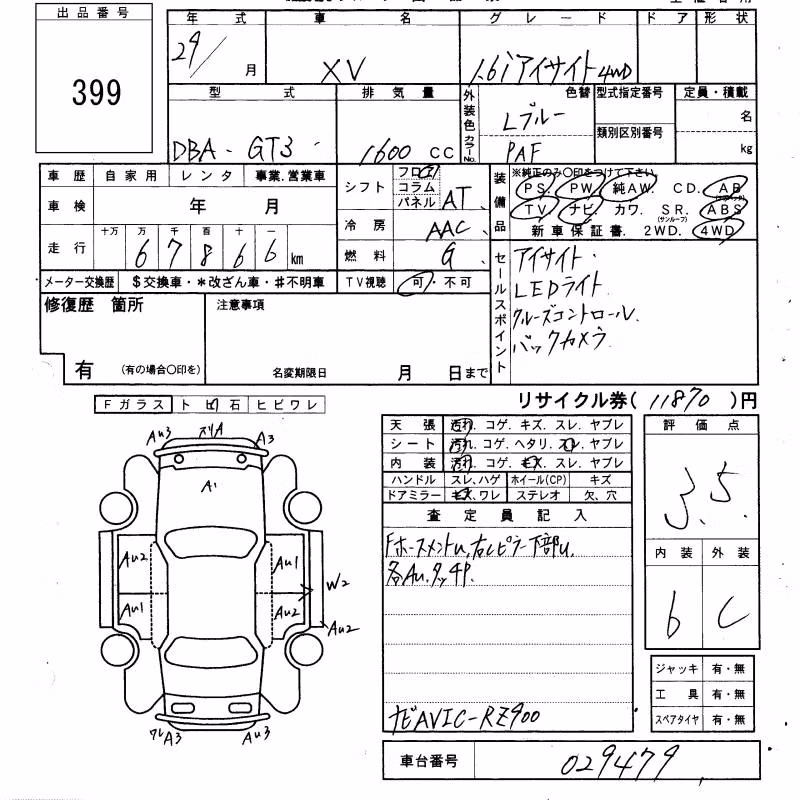 出品番号
399
年式 車名 グレード ドア 形状
29/月 XV 1.6i アイサイト 4WD
型式 排気量 外装色 カラーNo. 色替 型式指定番号 定員・積載
DBA - GT3 1600 CC Lブルー PAF 類別区別番号 名 kg
車歴 自家用 レンタ 事業.営業車
車検 年 月
走行 十万 万 千 百 十 一
6 7 8 6 6 km
メーター交換歴 $交換車・*改ざん車・♯不明車
シフト フロア コラム パネル AT
冷房 AAC
燃料 G
TV視聴 可・不可
装備品 ※純正のみ○印をつけて下さい
PS. PW. 純AW. CD. AB
(サンルーフ)
TV. ナビ. カワ. SR. ABS
新車保証書. 2WD. 4WD
セールスポイント
アイサイト・
LEDライト
クルーズコントロール
バックカメラ
修復歴 箇所
有 (有の場合○印を)
注意事項
名変期限日 月 日まで
リサイクル券( 11870 )円
Fガラス トビ石 ヒビワレ
Au3 スリA A3
A1
Au2 Au1
W2
Au1 Au2
Au2
ワレA3 Au3
天張 汚れ. コゲ. キズ. スレ. ヤブレ
シート 汚れ. コゲ. ヘタリ. スレ. ヤブレ
内装 汚れ. コゲ. キズ. スレ. ヤブレ
ハンドル スレ.ハゲ ホイール(CP) キズ
ドアミラー キズ.ワレ ステレオ 欠、穴
査定員記入
Fホースメントu,右Lピラー下部u,
各Au,タッチP.
ナビAVIC-RZ900
評価点
3.5
内装 外装
6 C
ジャッキ 有・無
工具 有・無
スペアタイヤ 有・無
車台番号 029479